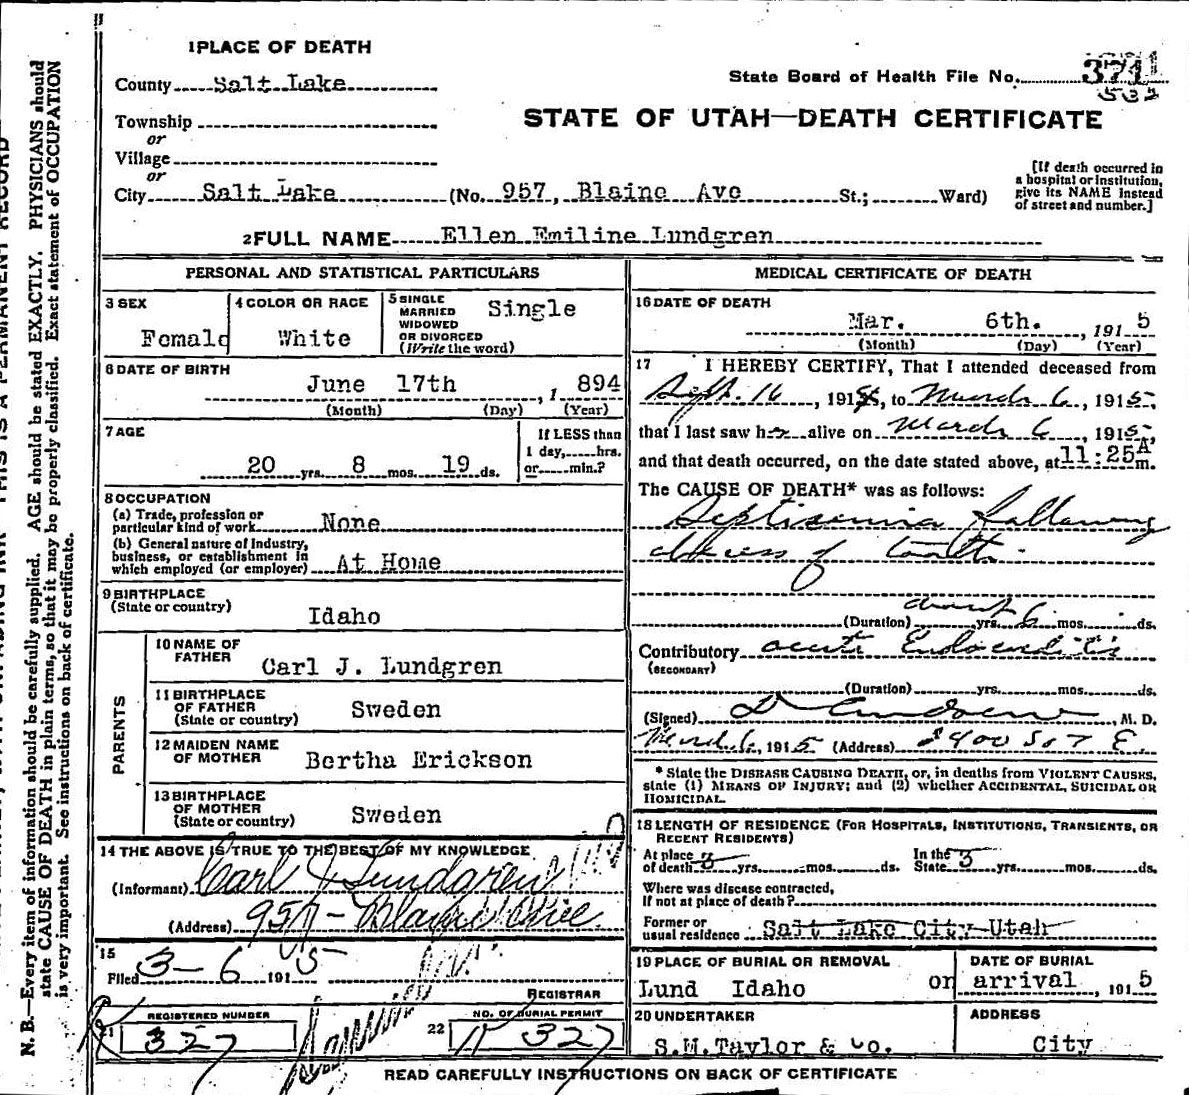 1 PLACE OF DEATH
County Salt Lake
State Board of Health File No. 371
532
Township
or
Village
or
STATE OF UTAH—DEATH CERTIFICATE
City Salt Lake (No. 957, Blaine Ave St.; Ward)
[If death occurred in
a hospital or institution,
give its NAME instead
of street and number.]
2 FULL NAME Ellen Emiline Lundgren
PERSONAL AND STATISTICAL PARTICULARS
3 SEX
Female
4 COLOR OR RACE
White
5 SINGLE
MARRIED
WIDOWED
OR DIVORCED
(Write the word)
Single
6 DATE OF BIRTH
June 17th, 1894
(Month) (Day) (Year)
7 AGE
20 yrs. 8 mos. 19 ds.
If LESS than
1 day, hrs.
or min.?
8 OCCUPATION
(a) Trade, profession or
particular kind of work None
(b) General nature of Industry,
business, or establishment in
which employed (or employer) At Home
9 BIRTHPLACE
(State or country)
Idaho
PARENTS
10 NAME OF
FATHER
Carl J. Lundgren
11 BIRTHPLACE
OF FATHER
(State or country)
Sweden
12 MAIDEN NAME
OF MOTHER
Bertha Erickson
13 BIRTHPLACE
OF MOTHER
(State or country)
Sweden
14 THE ABOVE IS TRUE TO THE BEST OF MY KNOWLEDGE
(Informant) Carl J Lundgren
(Address) 957 - Blaine Ave
15
Filed 3-6 1915
REGISTRAR
21 REGISTERED NUMBER
327
22 NO. OF BURIAL PERMIT
327
MEDICAL CERTIFICATE OF DEATH
16 DATE OF DEATH
Mar. 6th., 1915
(Month) (Day) (Year)
17 I HEREBY CERTIFY, That I attended deceased from
Sept. 16, 191, to March 6, 1915,
that I last saw her alive on March 6, 1915,
and that death occurred, on the date stated above, at 11:25 A m.
The CAUSE OF DEATH* was as follows:
Septisemia following
abscess of tooth.
about 6
(Duration) yrs. mos. ds.
Contributory acute Endocarditis
(SECONDARY)
(Duration) yrs. mos. ds.
(Signed), M. D.
March 6, 1915 (Address) 2400 So 7 E.
* State the DISEASE CAUSING DEATH, or, in deaths from VIOLENT CAUSES,
state (1) MEANS OF INJURY; and (2) whether ACCIDENTAL, SUICIDAL OR
HOMICIDAL.
18 LENGTH OF RESIDENCE (FOR HOSPITALS, INSTITUTIONS, TRANSIENTS, OR
RECENT RESIDENTS)
At place
of death 3 yrs. mos. ds.
In the
State 3 yrs. mos. ds.
Where was disease contracted,
if not at place of death?
Former or
usual residence Salt Lake City Utah
19 PLACE OF BURIAL OR REMOVAL
Lund Idaho
DATE OF BURIAL
on arrival, 1915
20 UNDERTAKER
S.M. Taylor & Co.
ADDRESS
City
READ CAREFULLY INSTRUCTIONS ON BACK OF CERTIFICATE
N. B.—Every item of information should be carefully supplied. AGE should be stated EXACTLY. PHYSICIANS should
state CAUSE OF DEATH in plain terms, so that it may be properly classified. Exact statement of OCCUPATION
is very important. See instructions on back of certificate.
THIS IS A PERMANENT RECORD